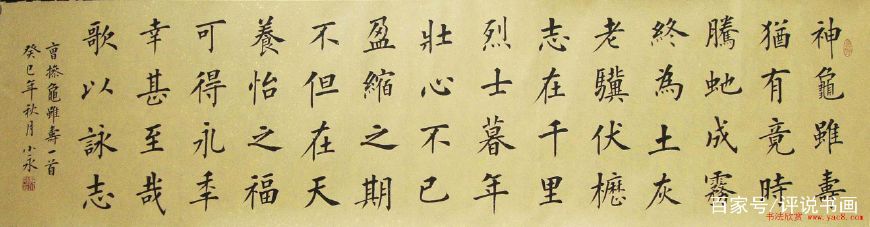 神龜雖壽
猶有竟時
騰虵成霧
終為土灰
老驥伏櫪
志在千里
烈士暮年
壯心不已
盈縮之期
不但在天
養怡之福
可得永年
幸甚至哉
歌以詠志
曹操龜雖壽一首
癸巳年秋月小永
百家号/评说书画
书法欣赏 www.yac8.com